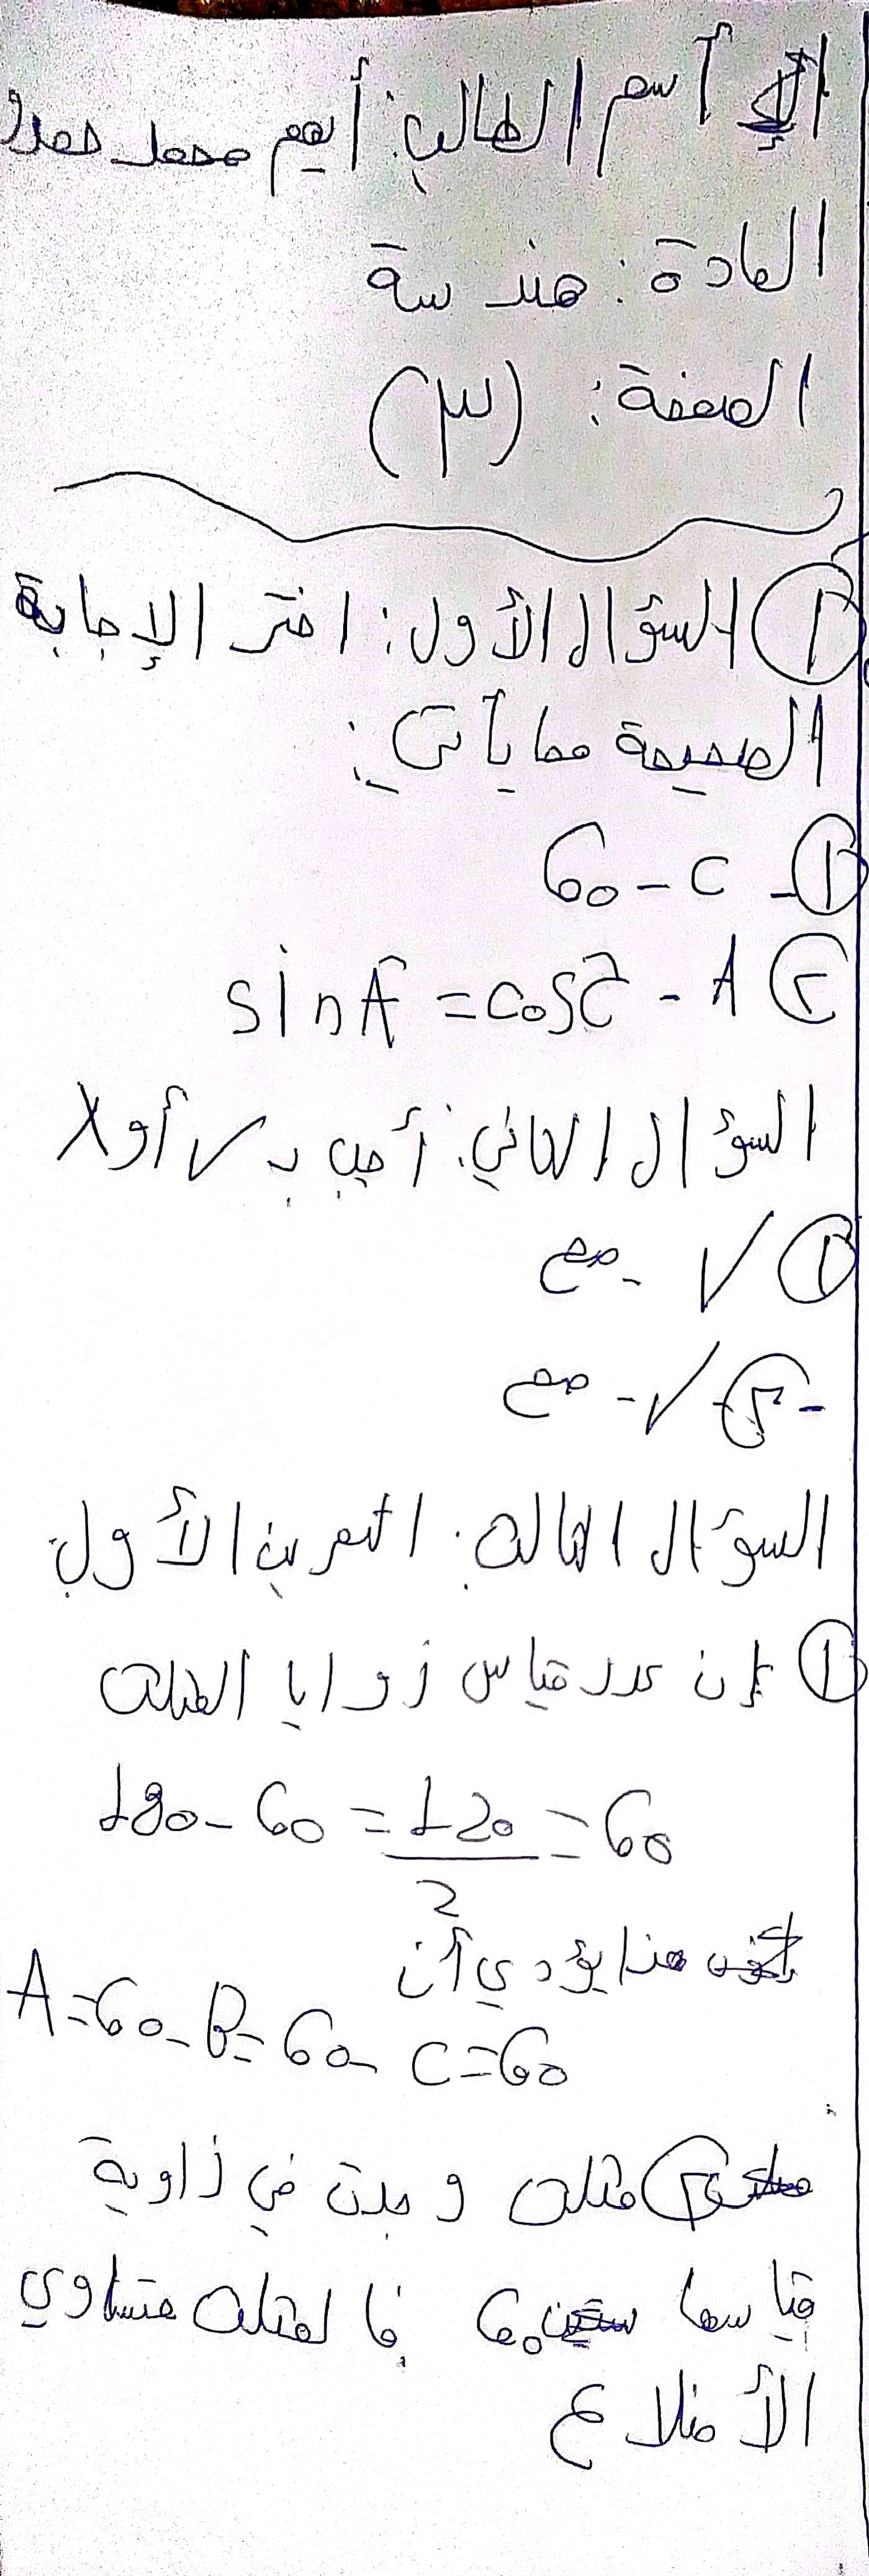 أسم الطالب: أيهم محمد حمدا
المادة: هندسة
الصفنة: (٣)
① السؤال الأول: اختر الإجابة
الصحيحة مما يأتي:
① - C - 60
② A - sin Â = cos Ĉ
السؤال الثاني: أجب بـ ✓ أو X
① ✓ - صح
- ② - ✓ - صح
السؤال الثالث: التمرين الأول
① إن عدد قياس زوايا المثلث
180 - 60 = 120/2 = 60
هذا يؤدي أن
A = 60 - B = 60 - C = 60
② مثلث وجدت في زاوية
قياسها 60 فالمثلث متساوي
الأضلاع